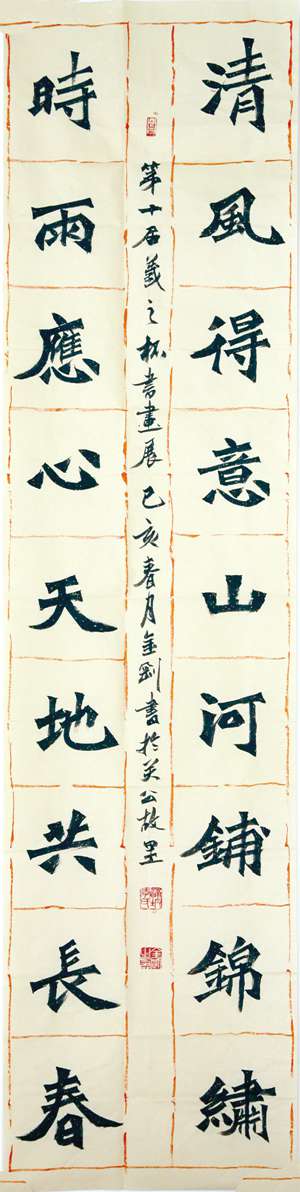 清風得意山河鋪錦繡
第十届羲之杯書畫展 己亥春月金剛書於关公故里
時雨應心天地共長春